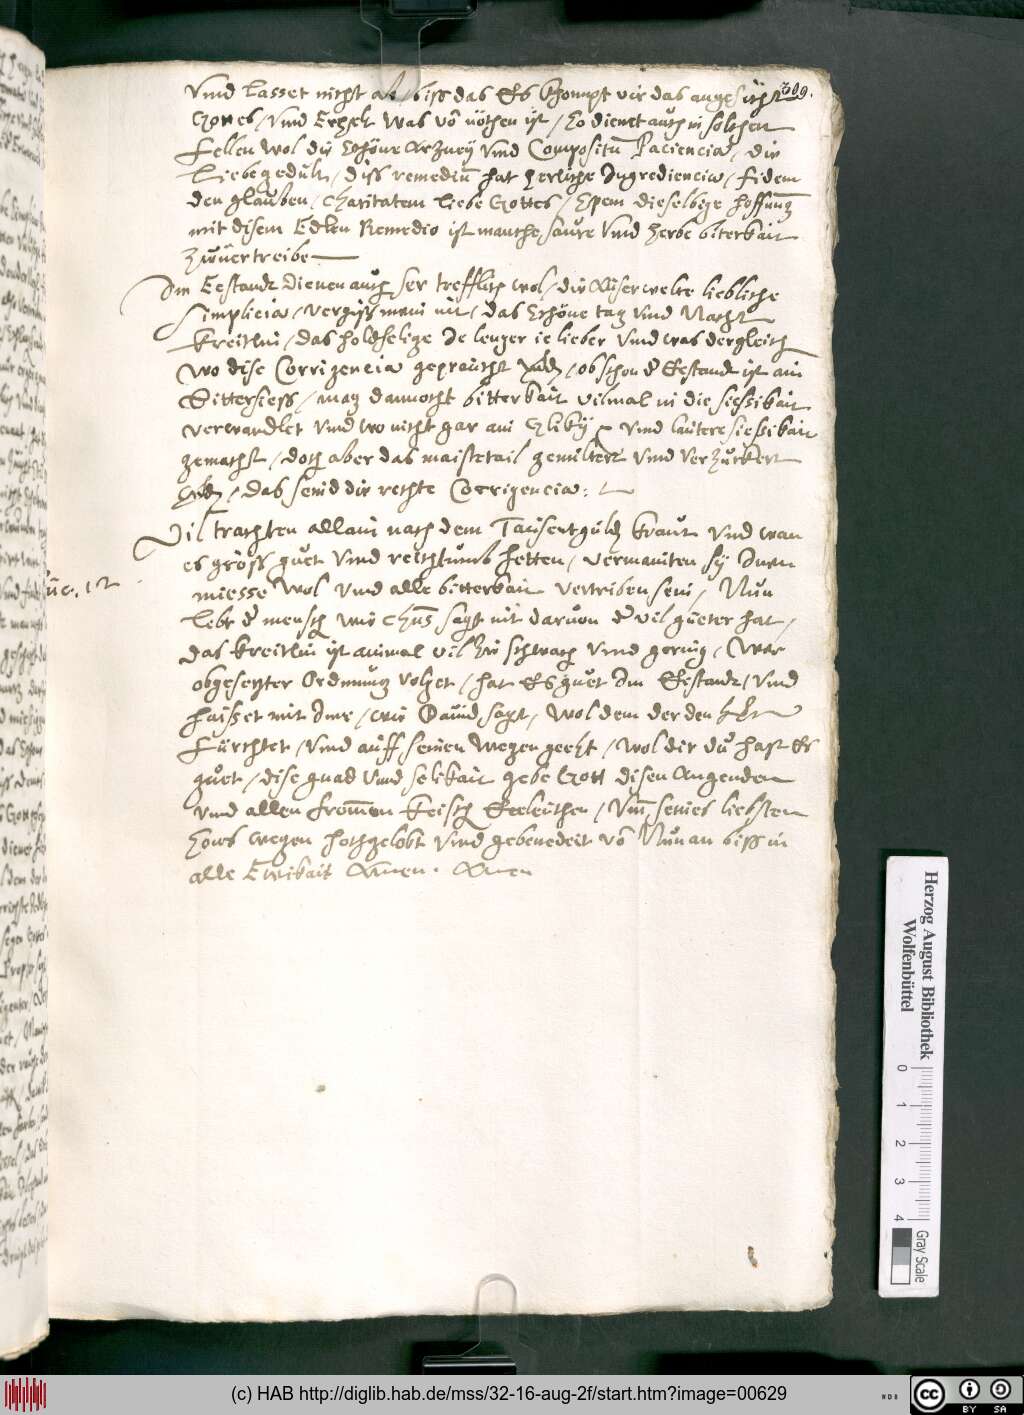 309.
vnnd lasset nicht ab / biss das Es khompt vir das angesicht
Gottes / vnd Erhelt was võ nöthen ist / so dienet auch in solchen
fellen wol die schöne Arzney vnd Compositũ Paciencia, die
Liebe gedult / diss remediũ hat herliche Ingrediencia / fidem
den glauben / Charitatem liebe Gottes / Spem dieselbige hoffnung
mit disem Edlen Remedio ist manche saure vnd herbe biterkait
zuuertreibe
Im Eestandt dienen auch ser trefflich wol / die Ausserwelte liebliche
simplicia / vergiss mein nit / das schöne tag vnd Nacht
kreitlin / das holdselige Je lenger ie lieber vnnd was dergleich
Wo dise Corrigencia gepraucht / ob schon d Eestandt ist ain
Bittersiess / mag dannocht bitterkait vilmal in die siessikait
verwandlet vnd wo nicht gar ain vnd lautere siessikait
gemacht / doch aber das maistetail gemiltert vnd verzuckert
/ das seind die rechte Corrigencia:
Vil trachten allain nach dem Tausentguld kraut vnd wan
es gross guet vnnd reichtumb hetten / vermainten sy Inen
miesse wol vnd alle bitterkait vertriben sein / Nun
Luc. 12
lebt d mensch wie Chũs sagt nit daruon d vil güeter hat /
das kreitlin ist ainmal vil zu schwach vnnd gering / Wer
obgesetzter Ordnung volget / hat Es guet Im Eestandt / vnd
haisset mit Ime / wie Dauid sagt / Wol dem der den Hern
Fürchtet / vnd auff seinen wegen geeht / wol dir du hast Es
guet / dise gnad vnd selikait gebe Gott disen Angenden
vnd allen fromen keisch Eeleuthen / Vm seines liebsten
Sons wegen hochgelobt vnd gebenedeit võ Nun an biss in
alle Ewikait Amen. Amen
Herzog August Bibliothek
Wolfenbüttel
0 1 2 3 4
Gray Scale
(c) HAB http://diglib.hab.de/mss/32-16-aug-2f/start.htm?image=00629
WDB
cc BY SA